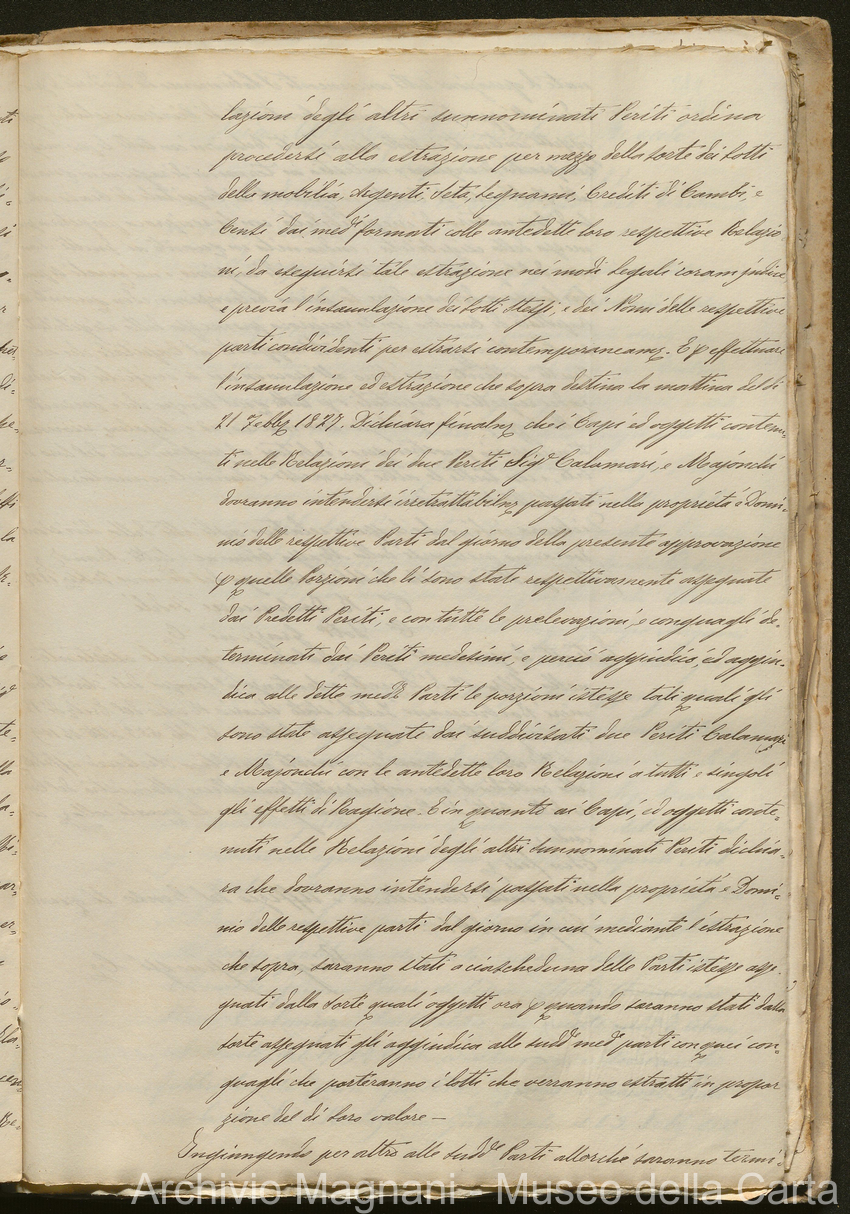 lazioni degli altri sunnominati Periti ordina
procedersi alla estrazione per mezzo della sorte dei Lotti
della mobilia, Argenti, Seta, Legnami, Crediti di Cambi, e
Censi dai med.i formati colle antedette loro respettive Relazio=
ni, da eseguirsi tale estrazione nei modi legali coram judice
e previa l'insaculazione dei Lotti stessi, e dei Nomi delle respettive
parti condividenti per estrarsi contemporaneam.e. E p effettuare
l'insaculazione ed estrazione che sopra destina la mattina del dì
21 Febb.o 1827. Dichiara finalm.e che i Capi ed oggetti contenu=
ti nelle Relazioni dei due Periti Sig.i Calamari, e Majonchi
dovranno intendersi irretrattabilm.e passati nella proprietà e Domi=
nio delle respettive Parti dal giorno della presente approvazione
p quelle Porzioni che li sono state respettivamente assegnate
dai Predetti Periti, e con tutte le prelevazioni, e conguagli de=
terminati dai Periti medesimi, e perciò aggiudicò, ed aggiu=
dica alle dette med.e Parti le porzioni istesse tali quali gli
sono state assegnate dai suddivisati due Periti Calamari
e Majonchi con le antedette loro Relazioni a tutti e singoli
gli effetti di Ragione. E in quanto ai Capi, ed oggetti conte=
nuti nelle Relazioni degli altri sunnominati Periti dichia=
ra che dovranno intendersi passati nella proprietà e Domi=
nio delle respettive parti dal giorno in cui mediante l'estrazione
che sopra, saranno stati a ciascheduna delle Parti istesse asse=
gnati dalla sorte quali oggetti ora p quando saranno stati dalla
sorte assegnati gli aggiudica alle sudd.e med.e parti con quei con=
guagli che porteranno i lotti che verranno estratti in propor
zione del di loro valore —
Ingiungendo per altro alle sudd.e Parti allorché saranno termi=
Archivio Magnani - Museo della Carta